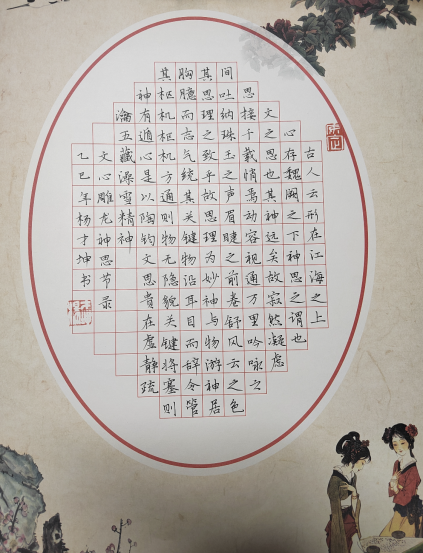 古人云形在江海之上
心存魏阙之下神思之谓也
文之思也其神远矣故寂然凝虑
思接千载悄焉动容视通万里吟咏之
间吐纳珠玉之声眉睫之前卷舒风云之色
其思理之致乎故思理为妙神与物游神居
胸臆而志气统其关键物沿耳目而辞令管
其枢机枢机方通则物无隐貌关键将塞则
神有遁心是以陶钧文思贵在虚静疏
瀹五藏澡雪精神
文心雕龙神思节录
乙巳年杨才坤书